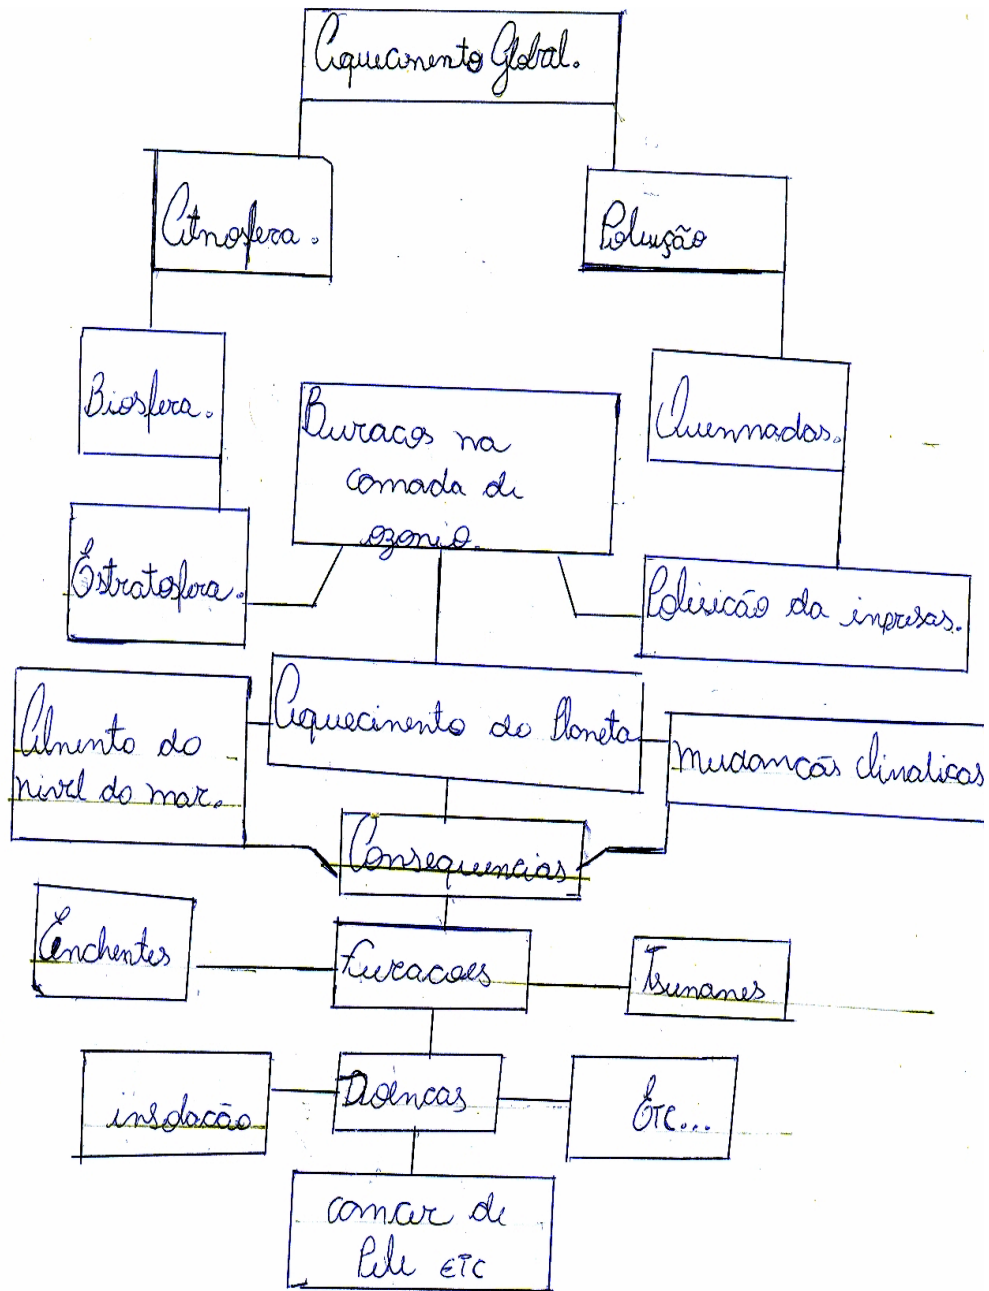 Aquecimento Global.
Atnosfera.
Poluição
Biosfera.
Buracos na
camada de
ozonio.
Queinnadas.
Estratosfera.
Poluicão da inpresas.
Almento do
nivel do mar.
Aquecinento do Planeta
mudancãs clinaticas
Consequencias
Enchentes
Furacoes
Tsunanes
insolacão
Doencas
Etc...
cancer de
Pele etc